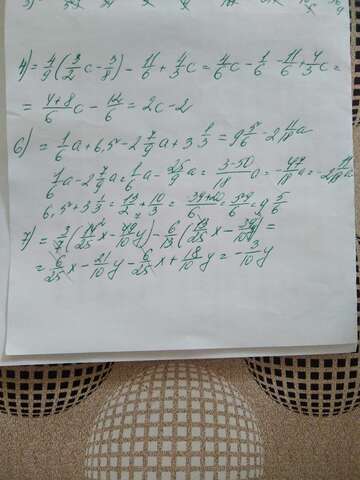 4) = 4/9 (3/2 c - 3/8) - 11/6 + 4/3 c = 4/6 c - 1/6 - 11/6 + 4/3 c =
= (4+8)/6 c - 12/6 = 2c - 2
6) = 1/6 a + 6,5 - 2 7/9 a + 3 1/3 = 9 5/6 - 2 11/18 a
1/6 a - 2 7/9 a = 1/6 a - 25/9 a = (3-50)/18 a = -47/18 a = -2 11/18 a
6,5 + 3 1/3 = 13/2 + 10/3 = (39+20)/6 = 59/6 = 9 5/6
7) = 3/7 (14/25 x - 49/10 y) - 6/13 (13/25 x - 39/10 y) =
= 6/25 x - 21/10 y - 6/25 x + 18/10 y = - 3/10 y